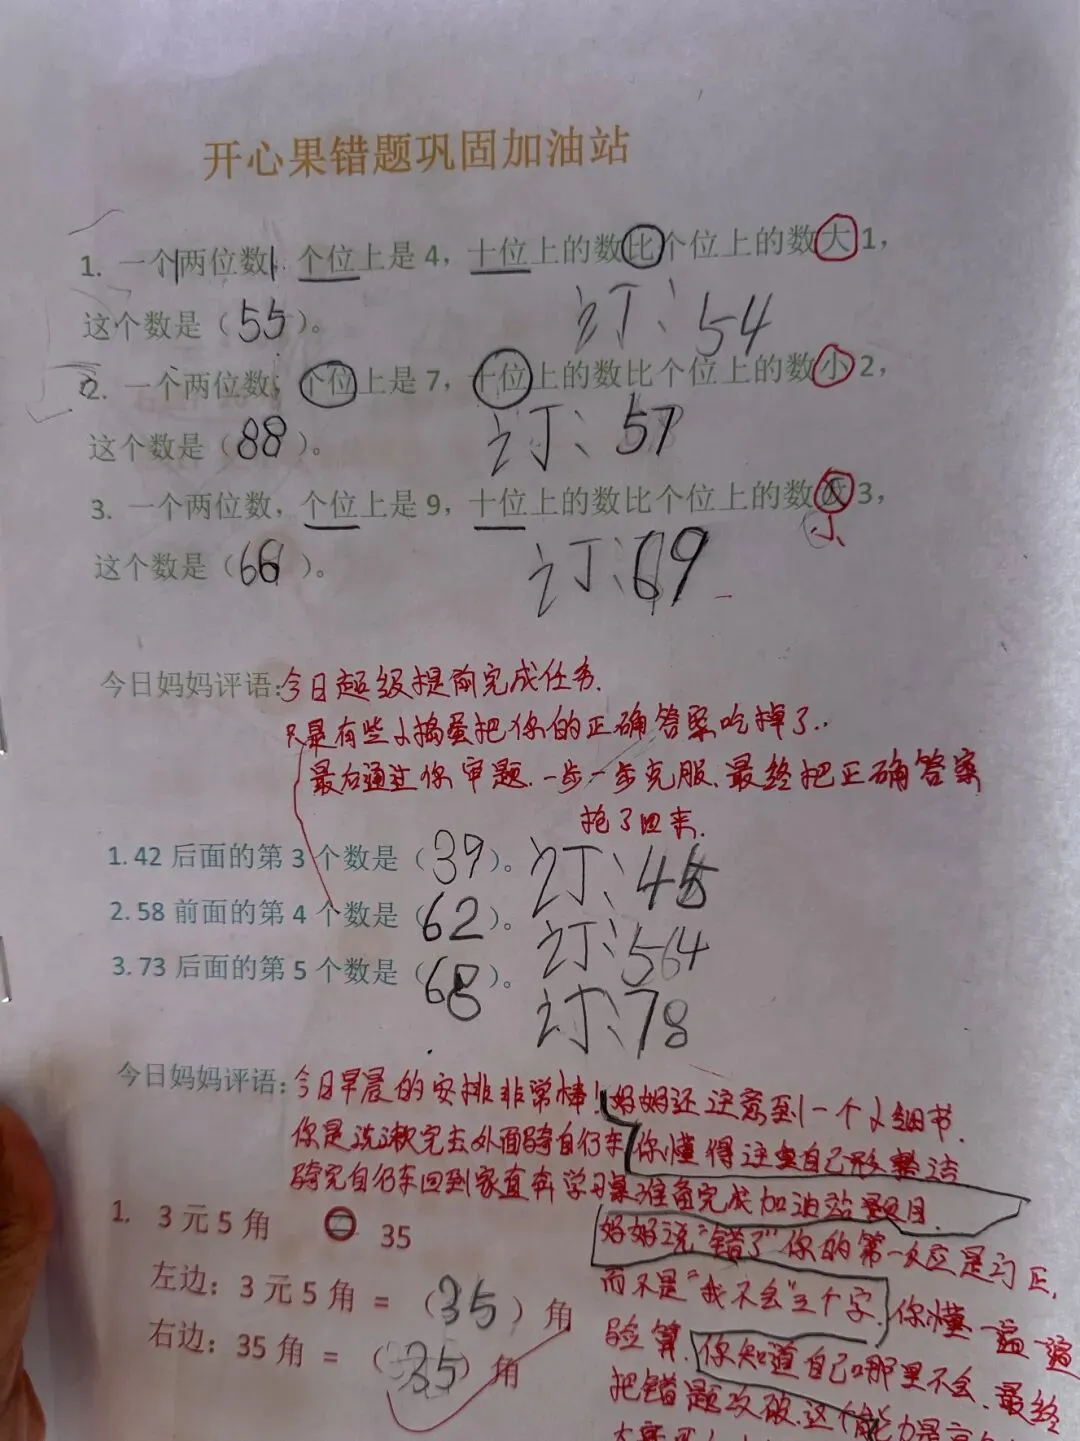 开心果错题巩固加油站
1. 一个两位数，个位上是 4，十位上的数比个位上的数大 1，
这个数是（55）。 订：54
2. 一个两位数，个位上是 7，十位上的数比个位上的数小 2，
这个数是（88）。 订：57
3. 一个两位数，个位上是 9，十位上的数比个位上的数 3，
小
这个数是（66）。 订：69
今日妈妈评语：今日超级提前完成任务.
只是有些小捣蛋把你的正确答案吃掉了..
最后通过你审题.一步一步克服.最终把正确答案
抢了回来.
1. 42 后面的第 3 个数是（39）。 订：45
2. 58 前面的第 4 个数是（62）。 订：54
3. 73 后面的第 5 个数是（68）。 订：78
今日妈妈评语：今日早晨的安排非常棒！妈妈还注意到一个小细节.
你是洗漱完去外面骑自行车 你懂得注自己形整洁
骑完自行车回到家直奔学习桌准备完成加油站题目.
1. 3 元 5 角 = 35
妈妈说“错了”你的第一反应是订正,
左边：3 元 5 角 =（35）角
而不是“我不会”三个字.你懂一遍一遍
右边：35 角 =（35）角
验算.你知道自己哪里不会.最终
把错题攻破.这个能力是